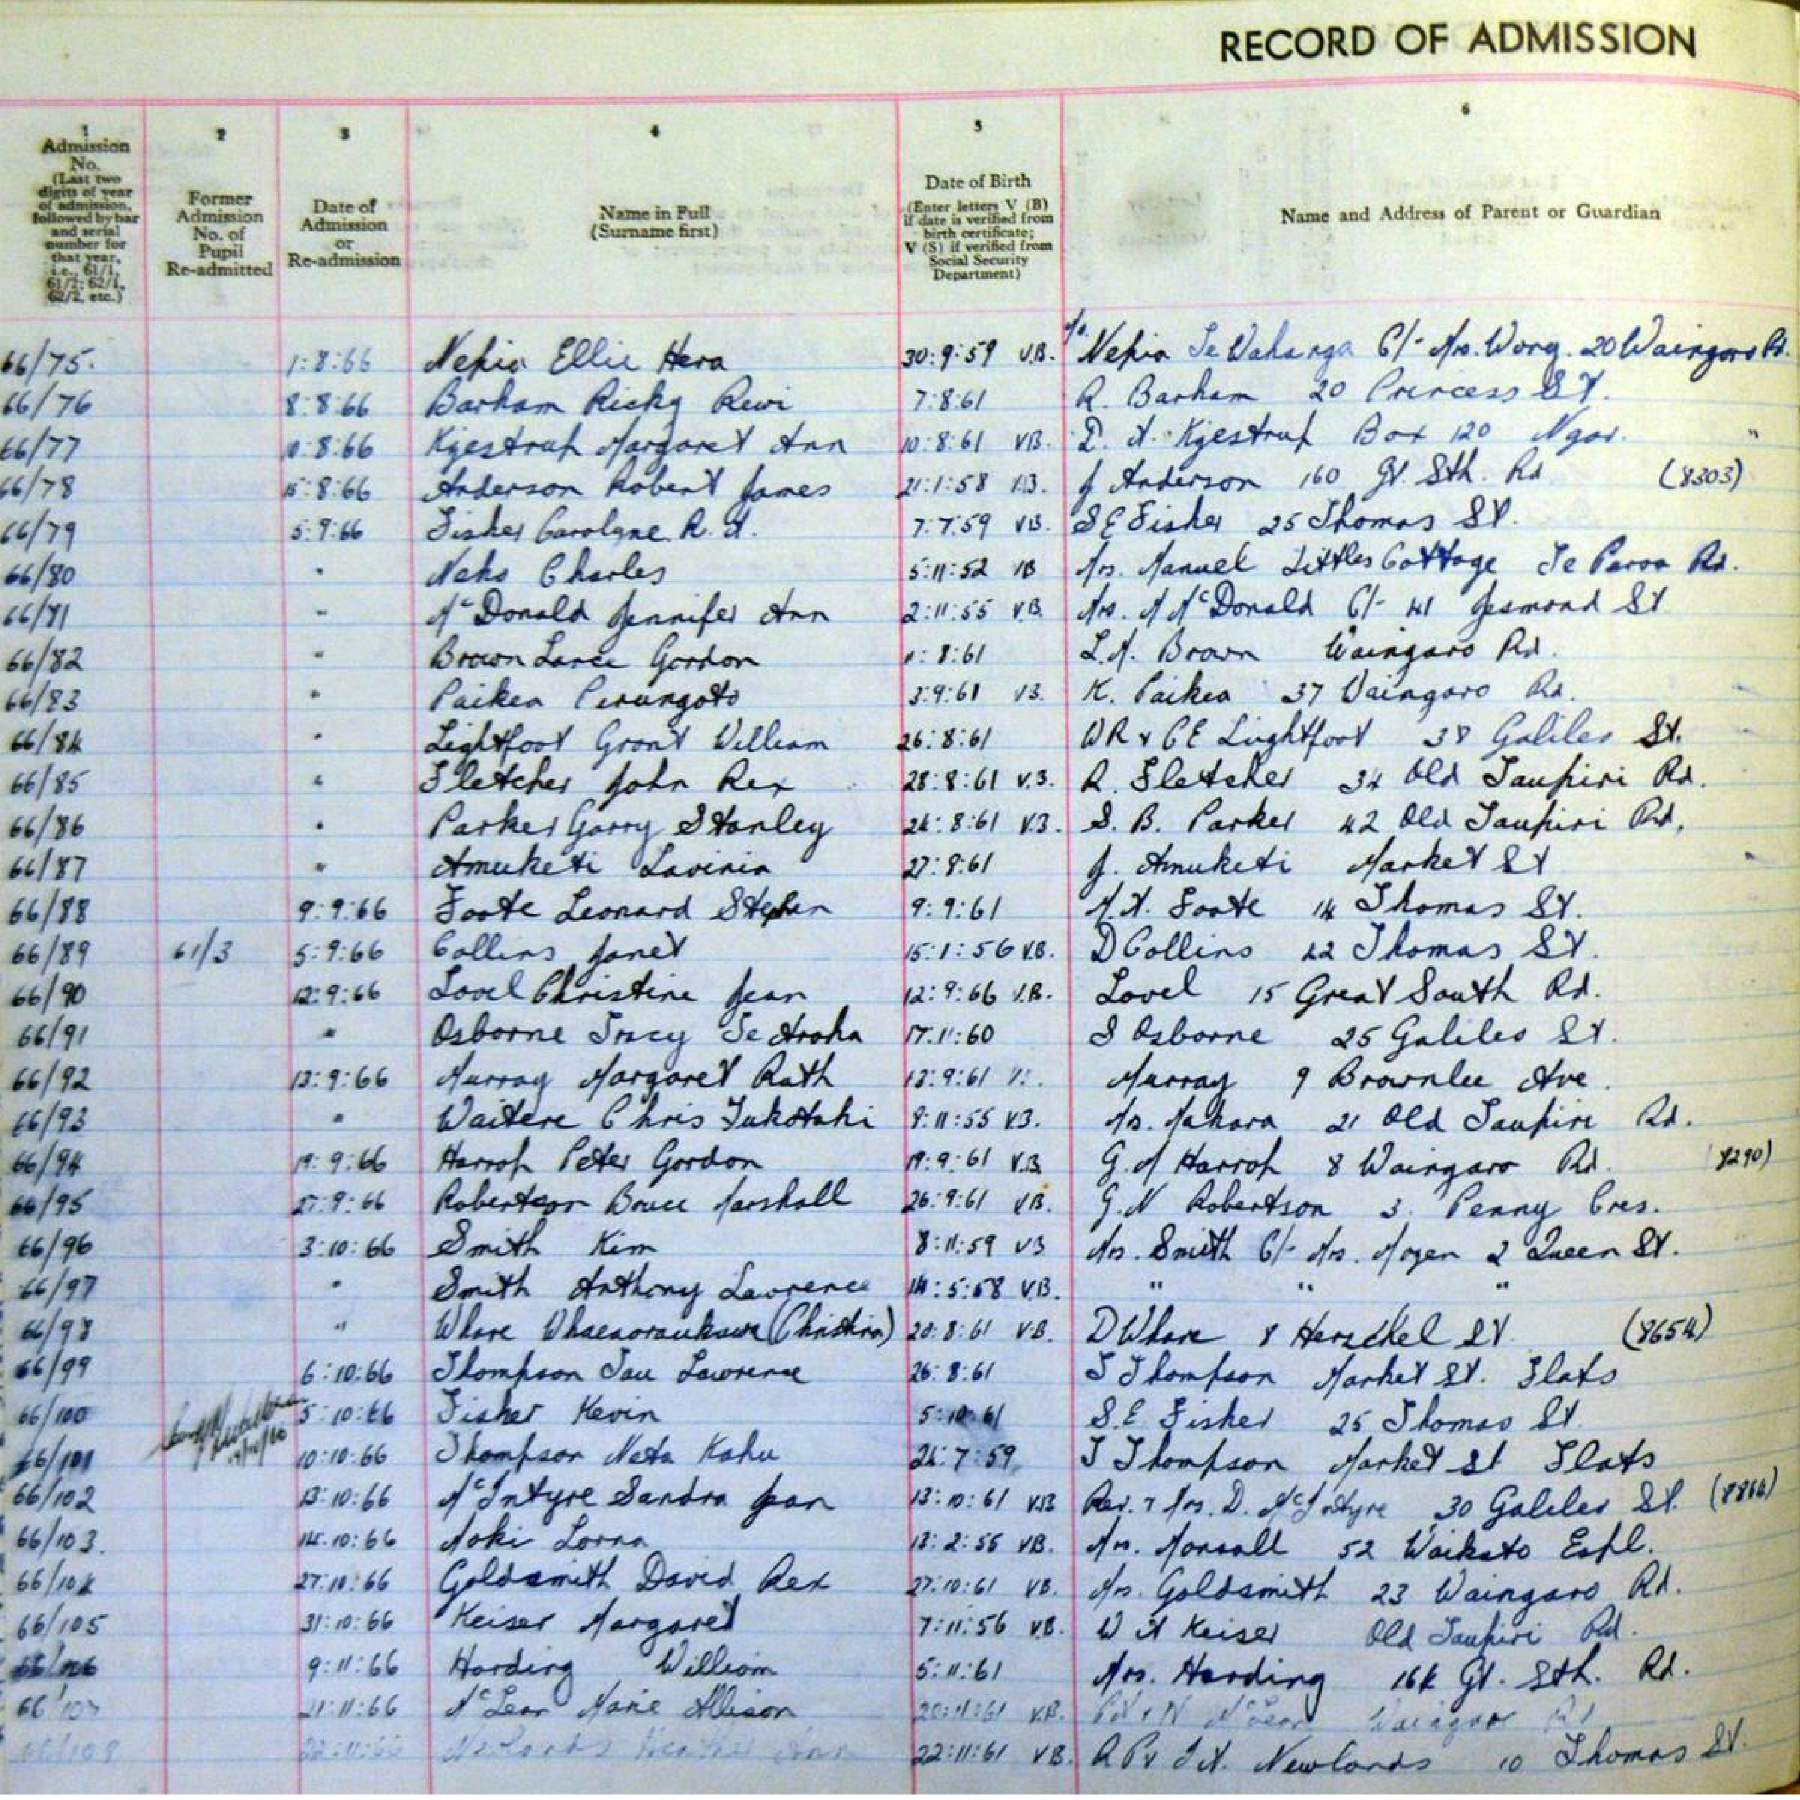 RECORD OF ADMISSION
1 2 3 4 5 6
Admission No. (Last two digits of year of admission, followed by bar and serial number for that year, i.e., 61/1, 61/2; 62/1, 62/2, etc.)
Former Admission No. of Pupil Re-admitted
Date of Admission or Re-admission
Name in Full (Surname first)
Date of Birth (Enter letters V (B) if date is verified from birth certificate; V (S) if verified from Social Security Department)
Name and Address of Parent or Guardian
66/75. 1:8:66 Nepia Ellie Hera 30:9:59 V.B. Nepia Te Wahanga C/- Mrs. Wong. 20 Waingaro Rd.
66/76 8:8:66 Barham Ricky Rewi 7:8:61 R. Barham 20 Princess St.
66/77 10:8:66 Kjestrup Margaret Ann 10:8:61 VB. Kjestrup Box 120 Ngar. "
66/78 15:8:66 Anderson Robert James 21:1:58 J Anderson 160 Gt. Sth. Rd (8303)
66/79 5:9:66 Fisher Carolyne R. A. 7:7:59 VB. S E Fisher 25 Thomas St.
66/80 " Neho Charles 5:11:52 VB Mrs. Manuel Littles Cottage Te Paroa Rd.
66/81 " McDonald Jennifer Ann 2:11:55 V.B. Mrs. M McDonald C/- 41 Jesmond St
66/82 " Brown Lance Gordon 1:8:61 L.A. Brown Waingaro Rd.
66/83 " Paikea Perungoto 3:9:61 VB. K. Paikea 37 Waingaro Rd.
66/84 " Lightfoot Grant William 26:8:61 WR & CE Lightfoot 38 Galileo St.
66/85 " Fletcher John Rex 28:8:61 V.B. R. Fletcher 34 Old Taupiri Rd.
66/86 " Parker Garry Stanley 24:8:61 V.B. S. B. Parker 42 Old Taupiri Rd,
66/87 " Amuketi Lavinia 27:8:61 J. Amuketi Market St
66/88 9:9:66 Foote Leonard Stephen 9:9:61 Foote 14 Thomas St.
66/89 61/3 5:9:66 Collins Janet 15:1:56 V.B. D Collins 42 Thomas St.
66/90 12:9:66 Lovel Christine Jean 12:9:66 V.B. Lovel 15 Great South Rd.
66/91 " Osborne Tracy Te Aroha 17:11:60 S Osborne 25 Galileo St.
66/92 13:9:66 Murray Margaret Ruth 13:9:61 Murray 9 Brownlee Ave.
66/93 " Waitere Chris Tukotahi 9:11:55 V.B. Mrs. Makara 21 Old Taupiri Rd.
66/94 19:9:66 Harrop Peter Gordon 19:9:61 V.B. G. A Harrop 8 Waingaro Rd. (8290)
66/95 27:9:66 Robertson Bruce Marshall 26:9:61 VB. G. N Robertson 3. Penny Cres.
66/96 3:10:66 Smith Kim 8:11:59 VB Mrs. Smith C/- Mrs. Mozen 2 Queen St.
66/97 " Smith Anthony Lawrence 14:5:58 V.B. " " "
66/98 " Whare (Christina) 20:8:61 V.B. D Whare 8 Herschel St. (8654)
66/99 6:10:66 Thompson Tau Lawrence 26:8:61 T Thompson Market St. Flats
66/100 5:10:66 Fisher Kevin 5:10:61 S.E Fisher 25 Thomas St.
66/101 10:10:66 Thompson Neta Kahu 24:7:59 T Thompson Market St Flats
66/102 13:10:66 McIntyre Sandra Jean 13:10:61 VB Rev. & Mrs. D. McIntyre 30 Galileo St. (8866)
66/103. 14:10:66 Moki Lorna 13:2:55 VB. Mrs. Monsall 52 Waikato Espl.
66/104 27:10:66 Goldsmith David Rex 27:10:61 VB. Mrs. Goldsmith 23 Waingaro Rd.
66/105 31:10:66 Keiser Margaret 7:11:56 V.B. W A Keiser Old Taupiri Rd.
66/106 9:11:66 Harding William 5:11:61 Mrs. Harding 164 Gt. Sth. Rd.
66/107 21:11:66 McLean Marie Allison 20:11:61 V.B. McLean Waingaro Rd
66/108 22:11:66 Newlands Heather Ann 22:11:61 VB. Newlands 10 Thomas St.